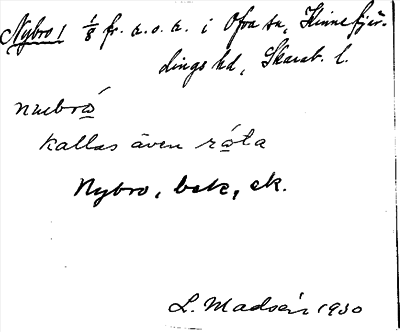 Nybro 1 1/8 fr. a. o. a. i Ova sn, Kinnefjär-
dings hd, Skarab. l.
nuebrå
kallas även råta
Nybro, bek, ek.
L. Madsén 1930